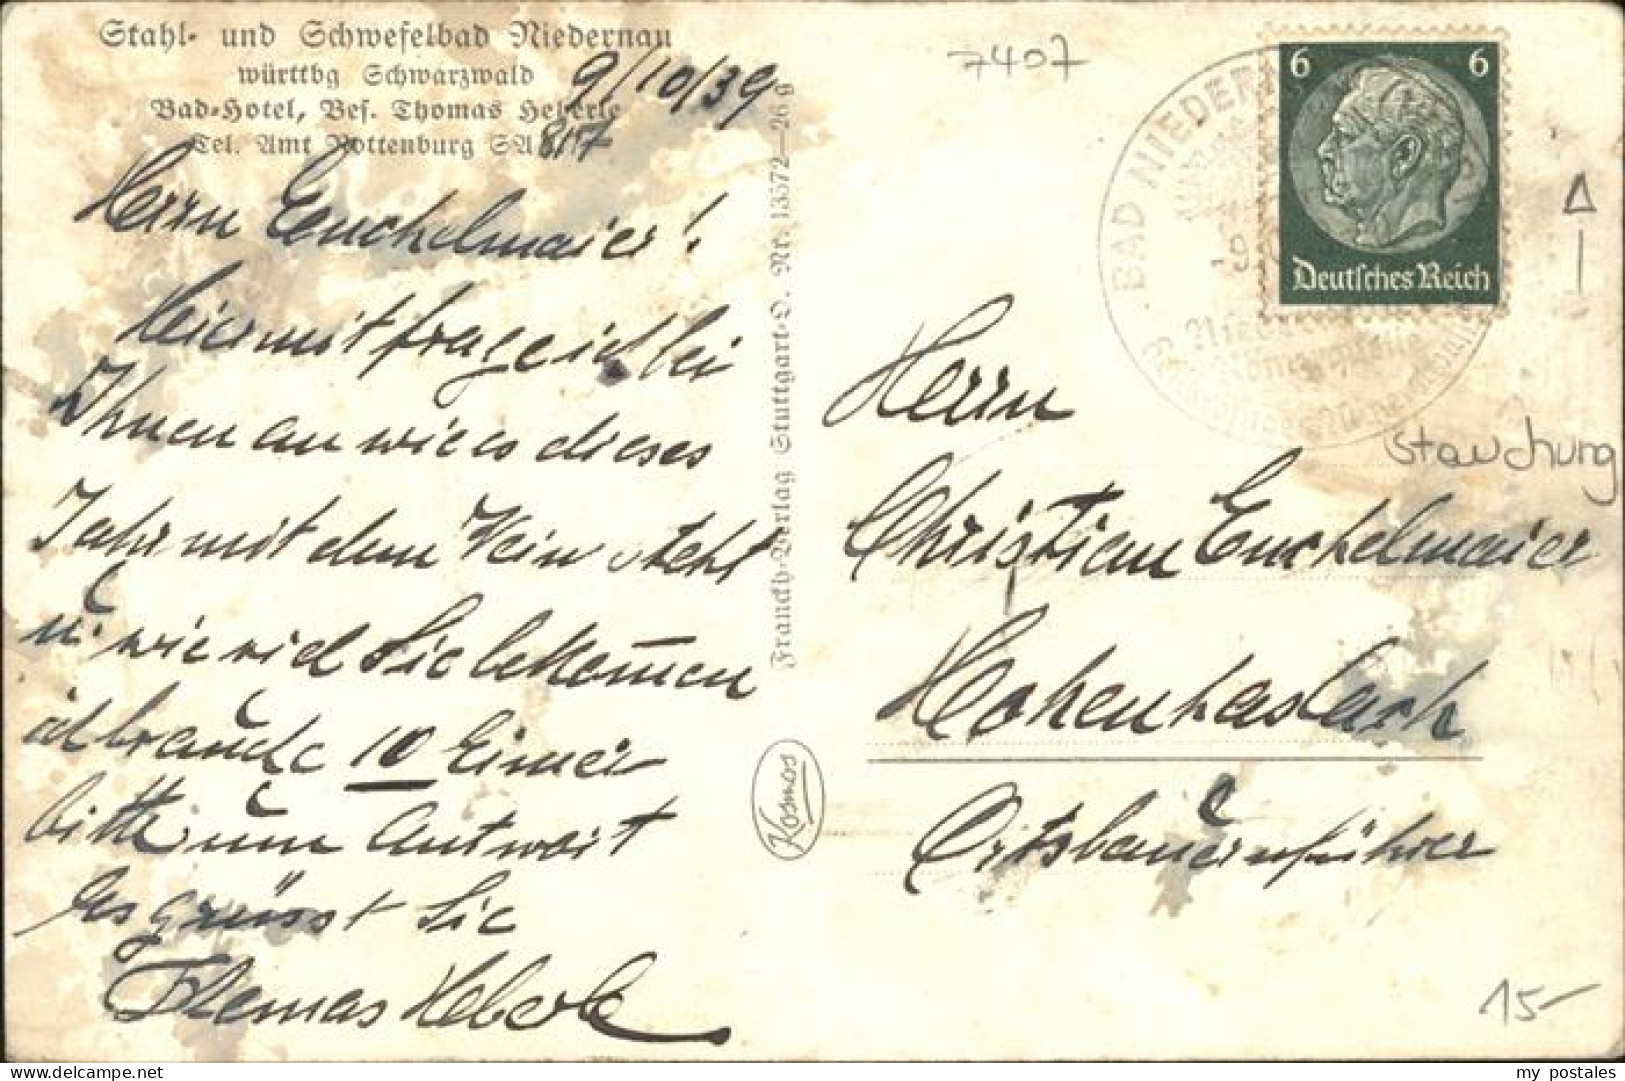 Stahl- und Schwefelbad Niedernau
württbg Schwarzwald
Bad-Hotel, Bes. Thomas Heberle
Tel. Amt Rottenburg SA 817
9/10/39
Herrn Enchelmaier!
hiermit frage ich bei
Ihnen an wie es dieses
Jahr mit dem Wein steht
u. wie viel Sie bekommen
ich brauche 10 Eimer
bitte um Antwort
Es grüsst Sie
Thomas Heberle
Franckh-Verlag Stuttgart-O. Nr. 13572—26 g
Kosmos
7407
BAD NIEDER
6 6
Deutsches Reich
Stauchung
Herrn
Christian Enchelmaier
Hohenhaslach
Ortsbauernführer
15-
my postales